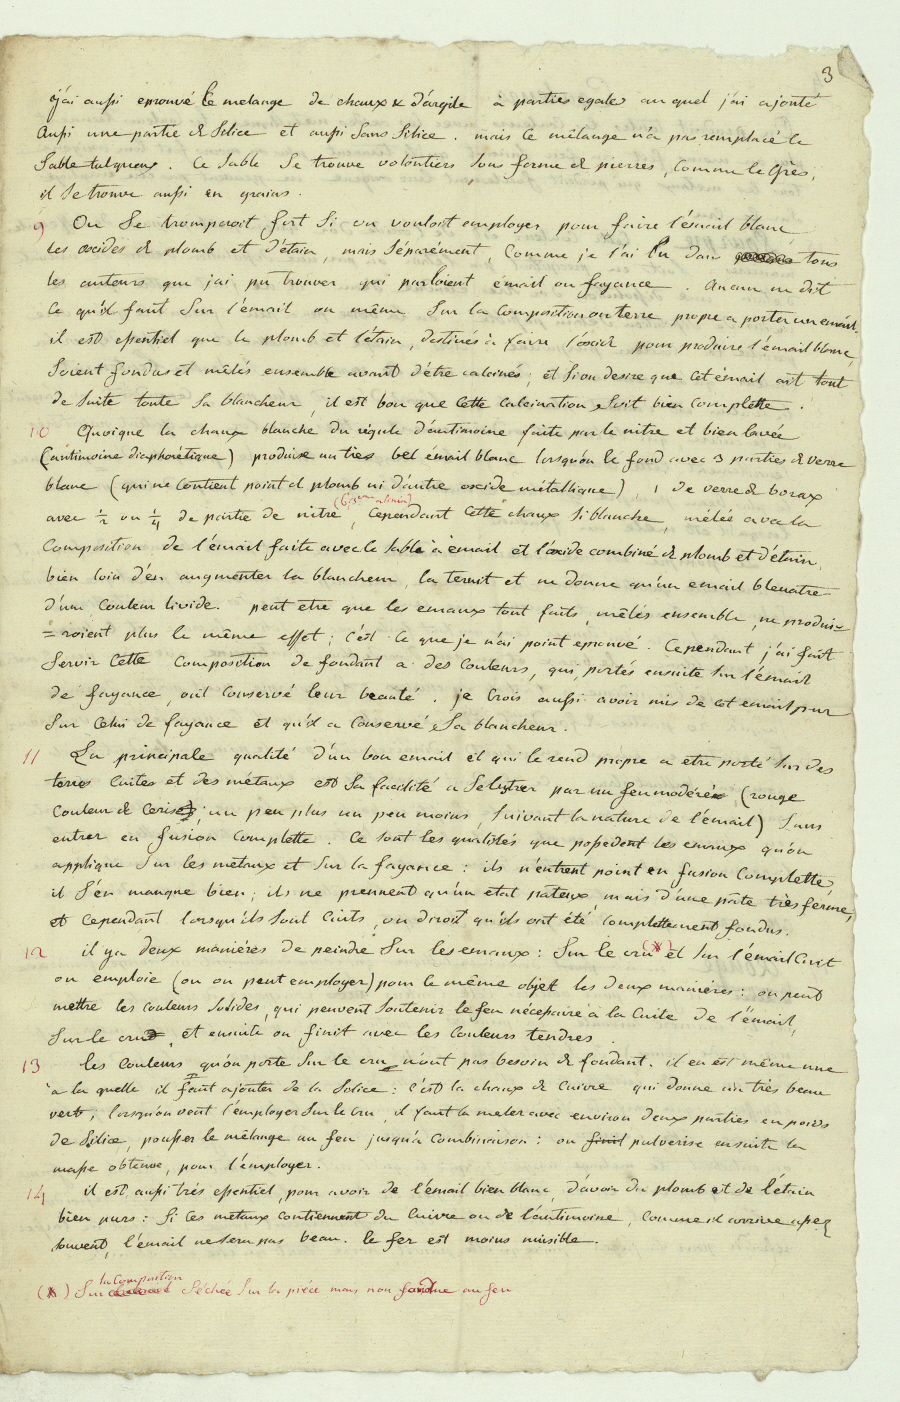 3
j'ai aussi eprouvé le melange de chaux & d'argile à parties egales au quel j'ai ajouté
Aussi une partie de Silice et aussi Sans Silice. mais Ce mêlange n'a pas remplacé le
Sable talqueux. Ce Sable Se trouve volontiers Sous forme de pierres, Comme le Grès,
il Se trouve aussi en grains.
9 On Se tromperoit fort Si on vouloit employer pour faire l'émail blanc
les oxides de plomb et d'étain, mais Séparément, Comme je l'ai lu dans tous
les auteurs que j'ai pu trouver qui parloient émail ou fayance. Aucun ne dit
Ce qu'il faut Sur l'émail ou même Sur la Composition ou terre propre a porter un email.
il est essentiel que le plomb et l'étain, destinés à faire l'oxide pour produire l'émail blanc,
Soient fondus et mêlés ensemble avant d'être calcinés; et Si on desire que Cet émail ait tout
de Suite toute Sa blancheur, il est bon que Cette Calcination Soit bien Complette.
10 Quoique la chaux blanche du régule d'antimoine faite par le nitre et bien lavée
(antimoine diaphorétique) produise un très bel émail blanc lorsqu'on le fond avec 3 parties de verre
blanc (qui ne Contient point de plomb ni d'autre oxide métallique), 1 de verre de borax
avec 1/2 ou 1/4 de partie de nitre, Cependant Cette chaux Si blanche, mêlée avec la
Composition de l'émail faite avec le Sable à émail et l'oxide combiné de plomb et d'étain,
bien loin d'en augmenter la blancheur, la ternit et ne donne qu'un email bleuatre
d'une Couleur livide. peut etre que les emaux tout faits, mêlés ensemble, ne produi-
=roient plus le même effet; C'est Ce que je n'ai point eprouvé. Cependant j'ai fait
Servir Cette Composition de fondant a des Couleurs, qui, portés ensuite Sur l'émail
de fayance, ont Conservé leur beauté. je Crois aussi avoir mis de cet email pur
Sur Celui de fayance et qu'il a Conservé Sa blancheur.
11 La principale qualité d'un bon email et qui le rend propre a etre porté Sur des
terres Cuites et des métaux est Sa facilité a Se lustrer par un feu modéré (rouge
Couleur de Cerise; un peu plus un peu moins, Suivant la nature de l'émail) Sans
entrer en fusion Complette. Ce Sont les qualités que possedent les emaux qu'on
applique Sur les métaux et Sur la fayance: ils n'entrent point en fusion Complette,
il S'en manque bien; ils ne prennent qu'un etat pateux, mais d'une pâte très férme;
et Cependant lorsqu'ils Sont Cuits, on diroit qu'ils ont été Complettement fondus.
12 il y a deux maniéres de peindre Sur les emaux: Sur le cru (*) et Sur l'émail Cuit
on emploie (ou on peut employer) pour le même objet les deux maniéres: on peut
mettre les Couleurs Solides, qui peuvent Soutenir le feu nécessaire à la Cuite de l'émail,
Sur le cru, et ensuite on finit avec les Couleurs tendres.
13 les Couleurs qu'on porte Sur le cru n'ont pas besoin de fondant. il en est même une
à la quelle il faut ajouter de la Silice: C'est la chaux de Cuivre qui donne un très beau
verd; lorsqu'on veut l'employer Sur le Cru, il faut la meler avec environ deux parties en poids
de Silice, pousser le mêlange au feu jusqu'à Combinaison: on finit pulverise ensuite la
masse obtenue, pour l'employer.
14 il est aussi très essentiel, pour avoir de l'émail bien blanc, d'avoir du plomb et de l'étain
bien purs: Si Ces métaux contiennent du Cuivre ou de l'antimoine, Comme il arrive assez
souvent, l'émail ne Sera pas beau. le fer est moins nuisible.
(*) Sur la Composition Séchée Sur la piéce mais non fondue au feu